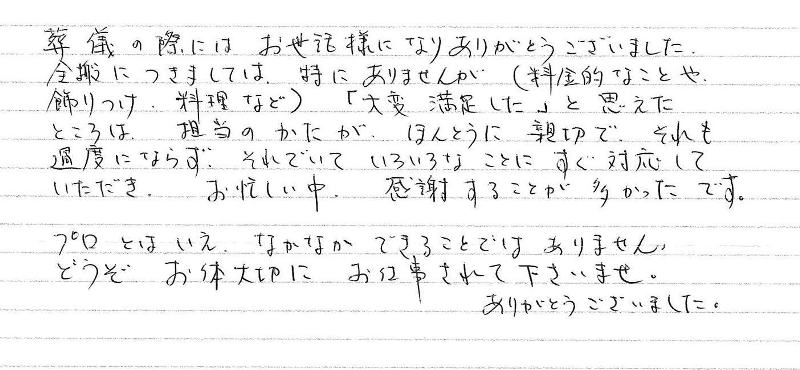 葬儀の際には お世話様になりありがとうございました.
全搬につきましては、特にありませんが (料金的なことや.
飾りつけ. 料理など) 「大変 満足した」と思えた
ところは、担当のかたが、ほんとうに 親切で、それも
過度にならず、それでいて いろいろな ことに すぐ対応して
いただき、 お忙しい中、 感謝することが 多かった です。
プロ とはいえ、なかなか できることでは ありません。
どうぞ お体大切に お仕事されて下さいませ。
ありがとうございました。